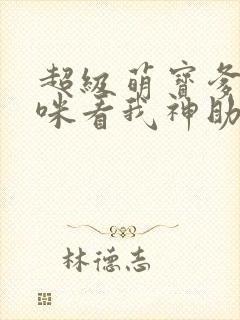 超级萌宝爹
咪看我神助
林德志